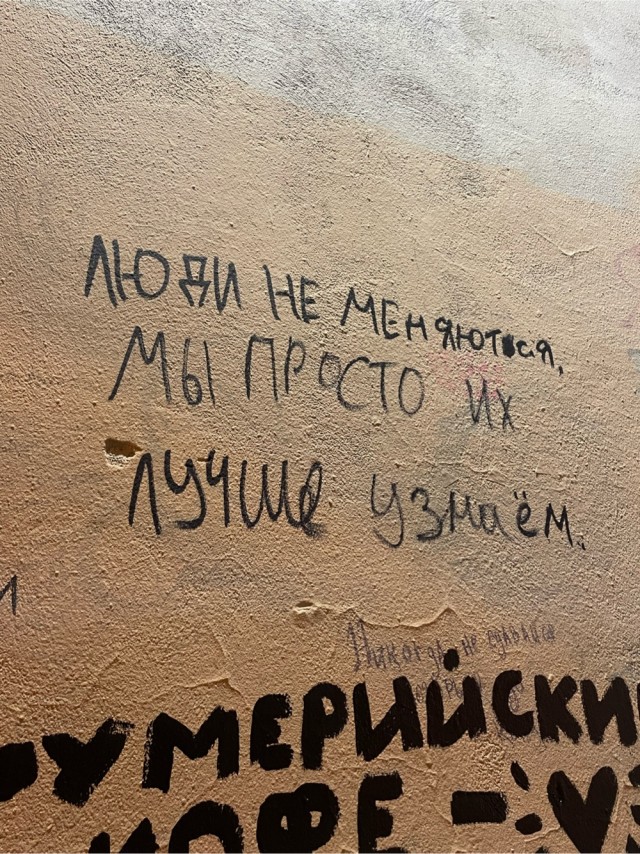 ЛЮДИ НЕ МЕНЯЮТСЯ,
МЫ ПРОСТО ИХ
ЛУЧШЕ УЗНАЁМ.
Никогда не
УМЕРИЙСКИ
КОФЕ –